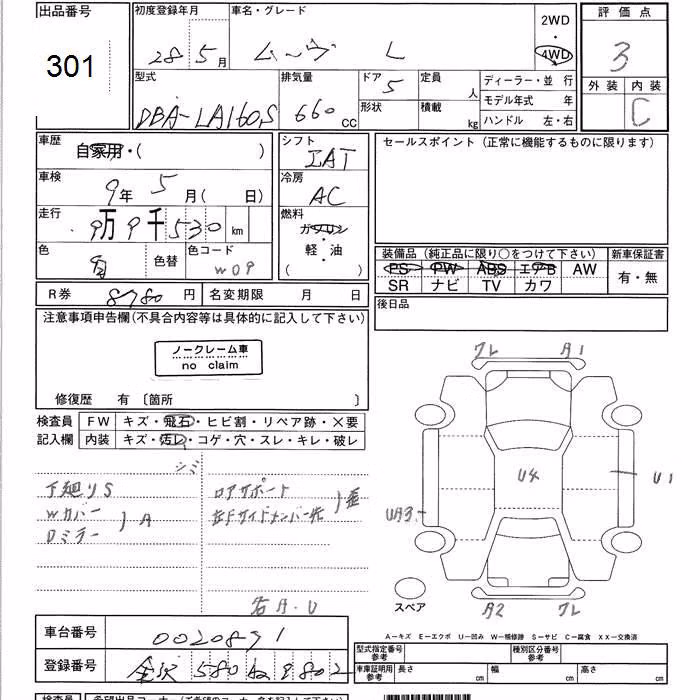 出品番号 初度登録年月 車名・グレード 2WD 評価点
301 28 5月 ムーヴ L ・ 4WD 3
外装 内装
型式 排気量 ドア 定員 ディーラー・並行 C
DBA-LA160S 660 CC 5 人 モデル年式 年
形状 積載 kg ハンドル 左・右
車歴 自家用・( ) シフト IAT セールスポイント(正常に機能するものに限ります)
車検 9年 5月( 日) 冷房 AC
走行 9万9千530 km 燃料 ガソリン
軽・油
( )
色 色替 色コード W09
装備品(純正品に限り○をつけて下さい) 新車保証書
PS PW ABS エアB AW 有・無
SR ナビ TV カワ
R券 8780円 名変期限 月 日 後日品
注意事項申告欄(不具合内容等は具体的に記入して下さい)
ノークレーム車
no claim
修復歴 有〔箇所 〕
検査員 FW キズ・飛石・ヒビ割・リペア跡・×要
記入欄 内装 キズ・汚レ・コゲ・穴・スレ・キレ・破レ
シミ
下廻りS
Wカバー
Dミラー
A
ロアサポート
左Fサイドメンバー先
ワレ A1
U4 U1
UA3
A2 ワレ
スペア
右A.U
A-キズ E-エクボ U-凹み W-補修跡 S-サビ C-腐食 XX-交換済
車台番号 0020871
型式指定番号 参考 種別区分番号 参考
登録番号 金沢 580
車庫証明用 参考 長さ cm 幅 cm 高さ cm